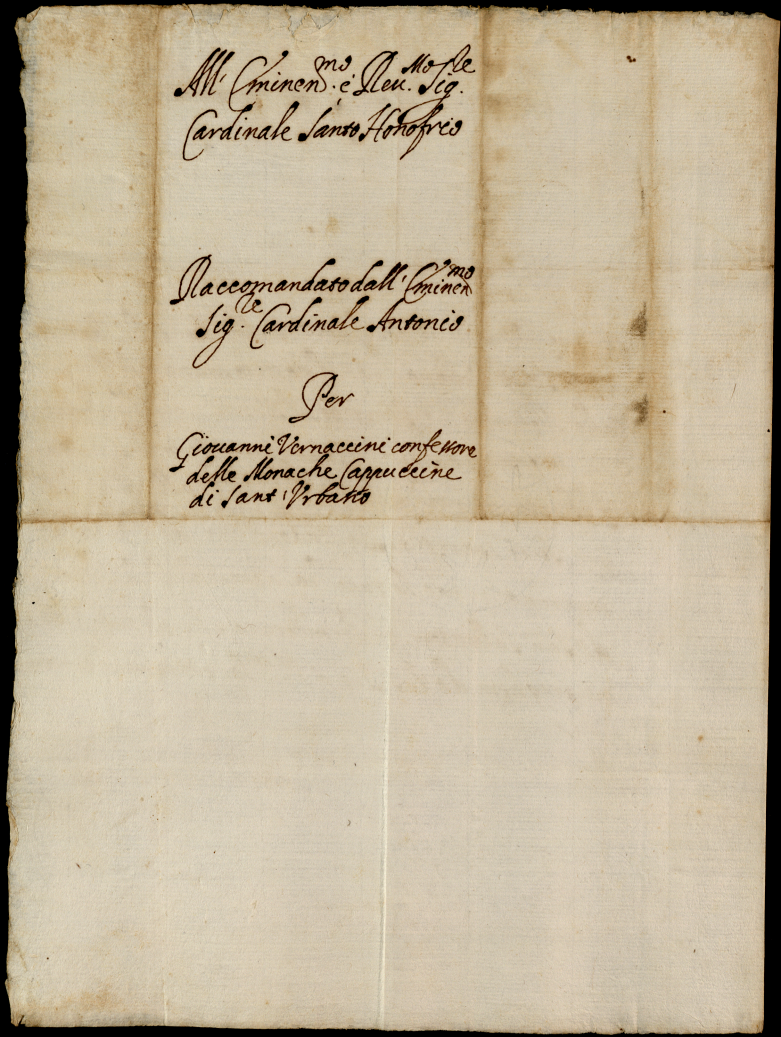 All' Eminen.mo e Reu.mo Sig.re
Cardinale Santo Honofrio
Raccomandato dall' Eminenmo
Sig.re Cardinale Antonio
Per
Giouanni Vernaccini confessore
delle Monache Cappuccine
di Sant' Vrbano